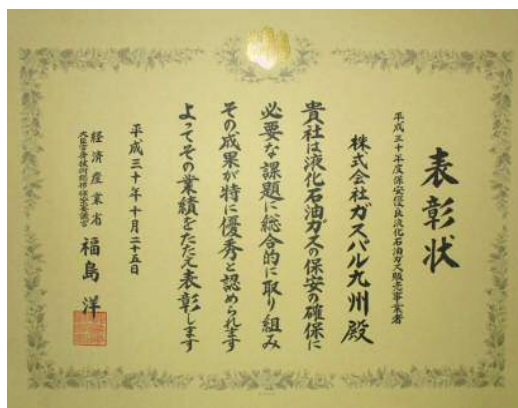 表彰状
平成三十年度保安優良液化石油ガス販売事業者
株式会社ガスパル九州殿
貴社は液化石油ガスの保安の確保に
必要な課題に総合的に取り組み
その成果が特に優秀と認められます
よってその業績をたたえ表彰します
平成三十年十月二十五日
経済産業省
大臣官房技術総括保安審議官
福島洋